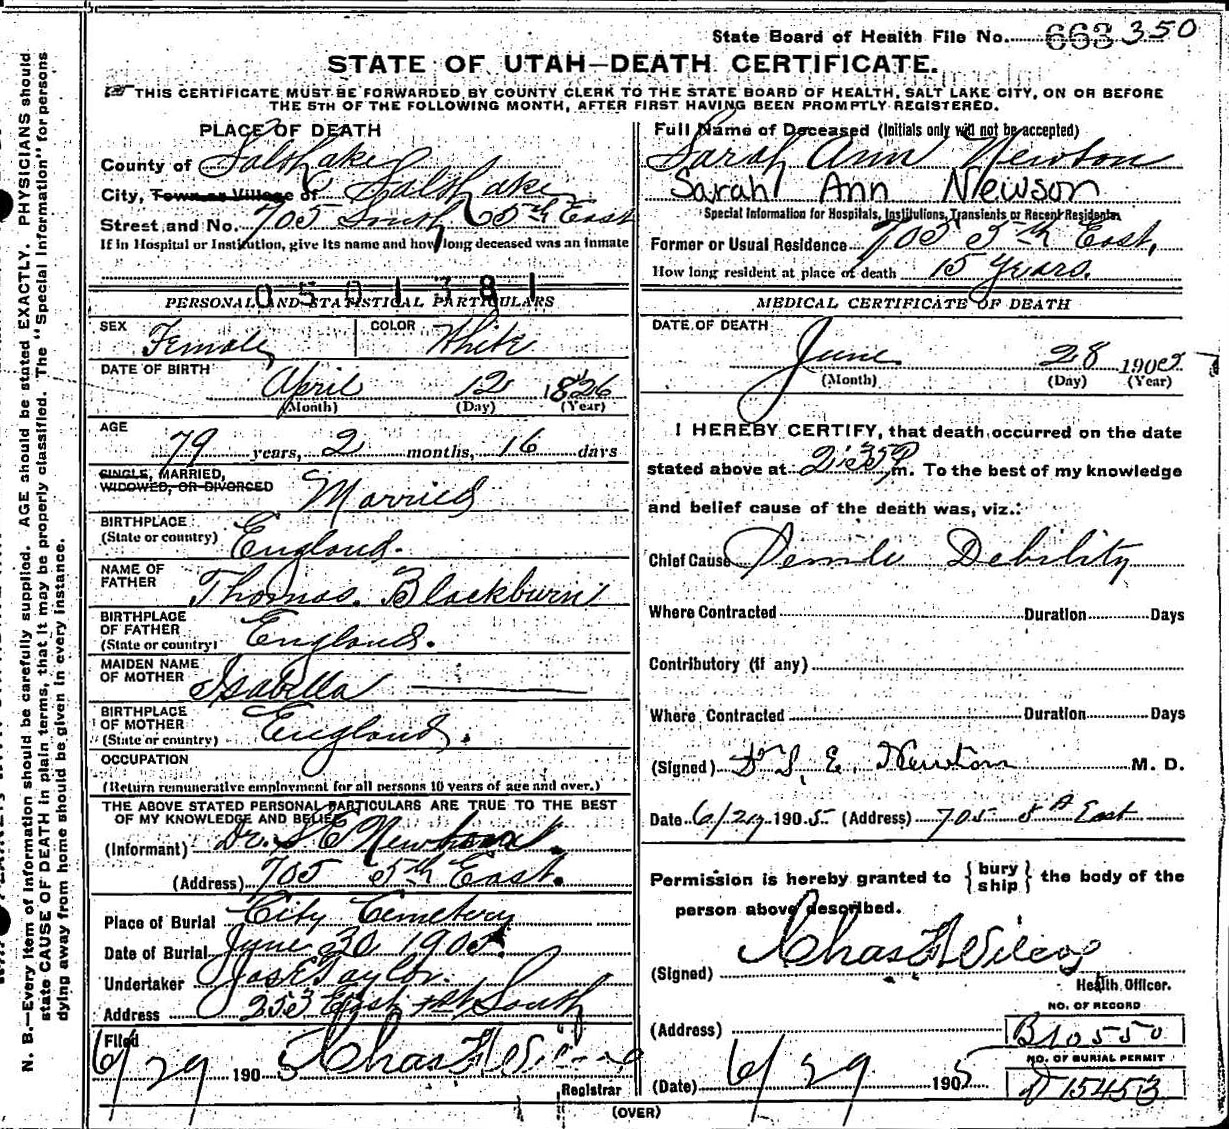 State Board of Health File No. 663 350
STATE OF UTAH—DEATH CERTIFICATE.
THIS CERTIFICATE MUST BE FORWARDED BY COUNTY CLERK TO THE STATE BOARD OF HEALTH, SALT LAKE CITY, ON OR BEFORE
THE 5TH OF THE FOLLOWING MONTH, AFTER FIRST HAVING BEEN PROMPTLY REGISTERED.
PLACE OF DEATH
County of Salt Lake
City, Town or Village of Salt Lake
Street and No. 705 South 5th East
If in Hospital or Institution, give its name and how long deceased was an inmate
0501381
PERSONAL AND STATISTICAL PARTICULARS
SEX Female COLOR White
DATE OF BIRTH
April 12 1826
(Month) (Day) (Year)
AGE
79 years, 2 months, 16 days
SINGLE, MARRIED,
WIDOWED, OR DIVORCED Married
BIRTHPLACE
(State or country) England.
NAME OF
FATHER Thomas. Blackburn
BIRTHPLACE
OF FATHER
(State or country) England.
MAIDEN NAME
OF MOTHER Isabella
BIRTHPLACE
OF MOTHER
(State or country) England.
OCCUPATION
(Return remunerative employment for all persons 10 years of age and over.)
THE ABOVE STATED PERSONAL PARTICULARS ARE TRUE TO THE BEST
OF MY KNOWLEDGE AND BELIEF
(Informant) Dr. S E
(Address) 705 5th East.
Place of Burial City Cemetery
Date of Burial June 30 1905
Undertaker Jos E Taylor.
Address 253 East 1st South
Filed
6/29 1905 Chas F Wilcox
Registrar
Full Name of Deceased (Initials only will not be accepted)
Sarah Ann Newton
Sarah Ann Newson
Special Information for Hospitals, Institutions, Transients or Recent Residents
Former or Usual Residence 705 5th East,
How long resident at place of death 15 Years.
MEDICAL CERTIFICATE OF DEATH
DATE OF DEATH
June 28 1905
(Month) (Day) (Year)
I HEREBY CERTIFY, that death occurred on the date
stated above at m. To the best of my knowledge
and belief cause of the death was, viz.:
Chief Cause Senile Debility
Where Contracted Duration Days
Contributory (if any)
Where Contracted Duration Days
(Signed) Dr S, E, Newton M. D.
Date 6/29 1905 (Address) 705 5th East
Permission is hereby granted to { bury ship } the body of the
person above described.
(Signed) Chas F Wilcox
Health Officer.
NO. OF RECORD
(Address) B10550
NO. OF BURIAL PERMIT
(Date) 6/29 1905 15453
(OVER)
N. B.—Every item of information should be carefully supplied. AGE should be stated EXACTLY. PHYSICIANS should
state CAUSE OF DEATH in plain terms, that it may be properly classified. The "Special Information" for persons
dying away from home should be given in every instance.